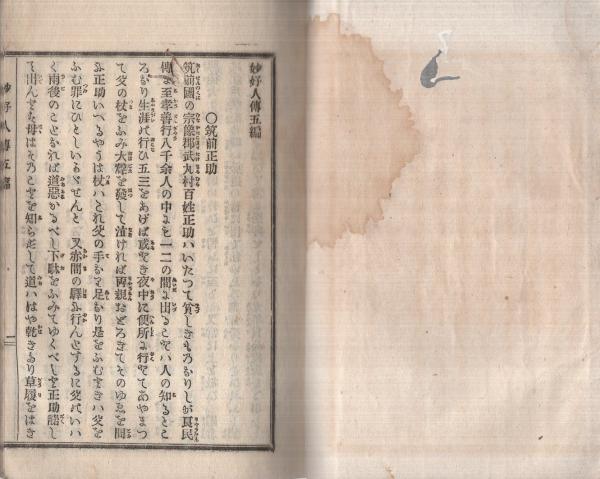 妙好人傳五編
○筑前正助
筑前國の宗像郡武丸村百姓正助ハいたつて貧しきものなりしが良民
傳に至孝善行八千余人の中にも一二の間に出ることハ人の知るとこ
ろなり生涯の行ひ五三をあげば或とき夜中に便所に行てあやまつ
て父の杖をふみ大聲を發して泣ければ両親おどろきてそのゆゑを問
ふ正助いへるやうは杖ハこれ父の手なり足なり是をふむときハ父を
ふむ罪にひとしいかゞせんと 又赤間の驛に行んとするに父のいハ
く雨後のことなれば道惡かるべし下駄をふみてゆくべしと正助諾し
て出んとす母はそのことを知らずして道ハはや乾きたり草履をはき
妙好人傳五編
一